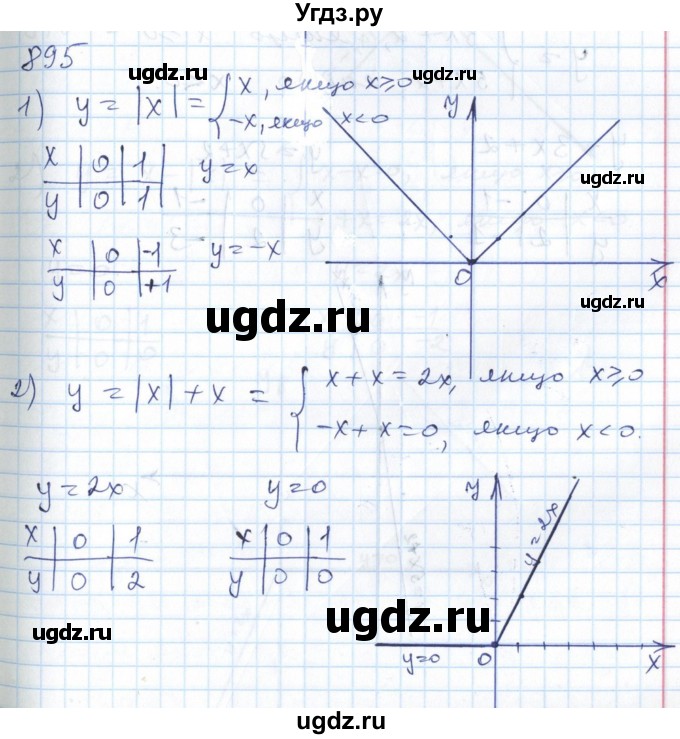 Угдз.ру
895
ugdz.ru
ugdz.ru
1) y = |x| = { x, якщо x⩾0
-x, якщо x<0
y
x | 0 | 1
y | 0 | 1
y=x
ugdz.ru
x | 0 | -1
y | 0 | +1
y=-x
0
x
ugdz.ru
ugdz.ru
2) y = |x| + x = { x + x = 2x, якщо x⩾0
-x + x = 0, якщо x<0.
y=2x
y=0
y
ugdz.ru
x | 0 | 1
y | 0 | 2
x | 0 | 1
y | 0 | 0
y=2x
ugdz.ru
ugdz.ru
y=0
0
x
ugdz.ru